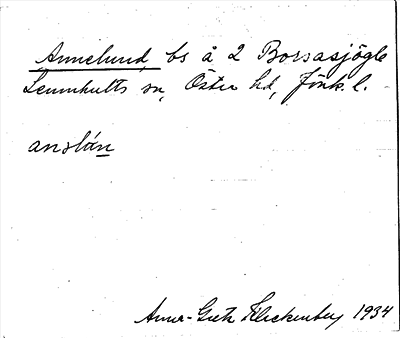 Annelund, bs å 2 Borsasjögle
Lemnhults sn, Östra hd, Jönk. l.
anəlún
Anna-Greta Fleckenberg 1934